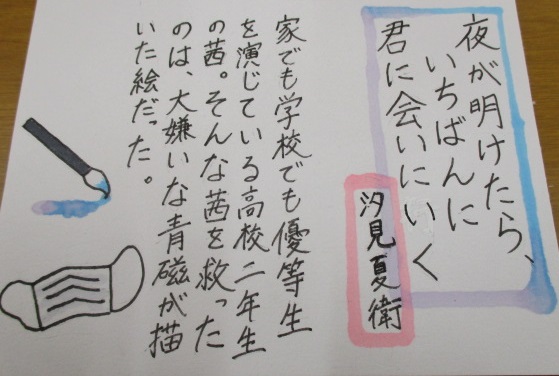 夜が明けたら、
いちばんに
君に会いにいく
汐見夏衛
家でも学校でも優等生
を演じている高校二年生
の茜。そんな茜を救った
のは、大嫌いな青磁が描
いた絵だった。